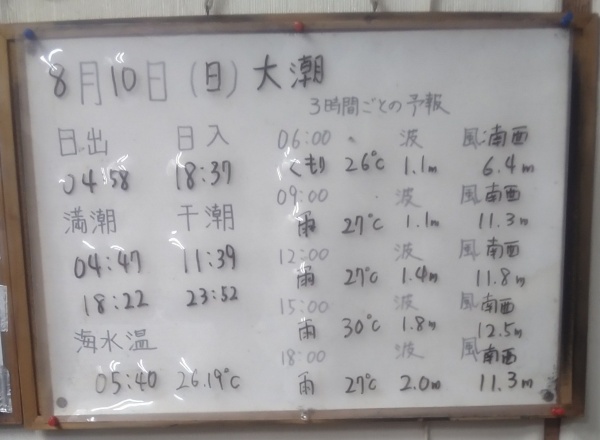 8月10日(日)大潮
3時間ごとの予報
日出 日入
04:58 18:37
満潮 干潮
04:47 11:39
18:22 23:52
海水温
05:40 26.19℃
06:00 波 風:南西
くもり 26℃ 1.1m 6.4m
09:00 波 風南西
雨 27℃ 1.1m 11.3m
12:00 波 風南西
雨 27℃ 1.4m 11.8m
15:00 波 風南西
雨 30℃ 1.8m 12.5m
18:00 波 風南西
雨 27℃ 2.0m 11.3m